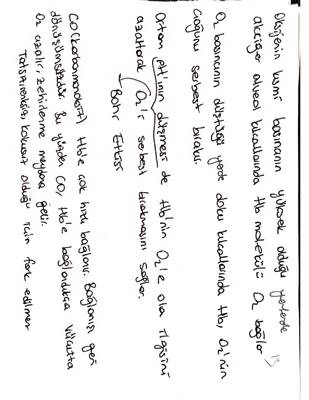 Oksijenin kısmi basıncının yüksek olduğu yerlerde
akciğer alveol kılcallarında Hb molekülü O₂ bağlar
O₂ basıncının düştüğü yerde doku kılcallarında Hb, O₂'nin
çoğunu serbest bırakır.
Ortam pH'ının düşmesi de Hb'nin O₂'e ola ilgisini
azaltarak O₂'i serbest bırakmasını sağlar.
Bohr Etkisi
CO(karbonmonoksit) Hb'e çok hızlı bağlanır. Bağlanışı geri
dönüşümsüzdür. Bu yüzden CO, Hb'e bağlandıkça vücutta
O₂ azalır, zehirlenme meydana gelir.
Tatsız, kokusuz olduğu için fark edilmez